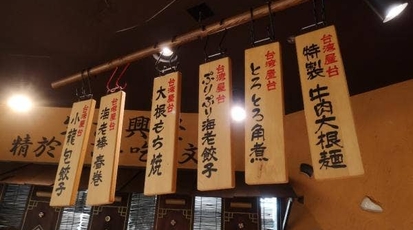 台湾屋台
特製 牛肉大根麺
台湾屋台
とろとろ角煮
台湾屋台
ぷりぷり海老餃子
台湾屋台
大根もち焼
台湾屋台
海老棒 春巻
台湾屋台
小籠包餃子
精於
興
吃
文